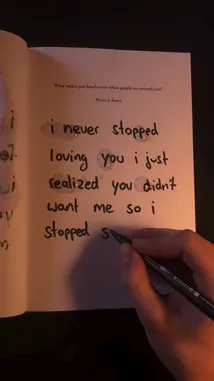 What makes you lonely even when people are around you?
Write it down.
i never stopped
loving you i just
realized you didn't
want me so i
stopped s